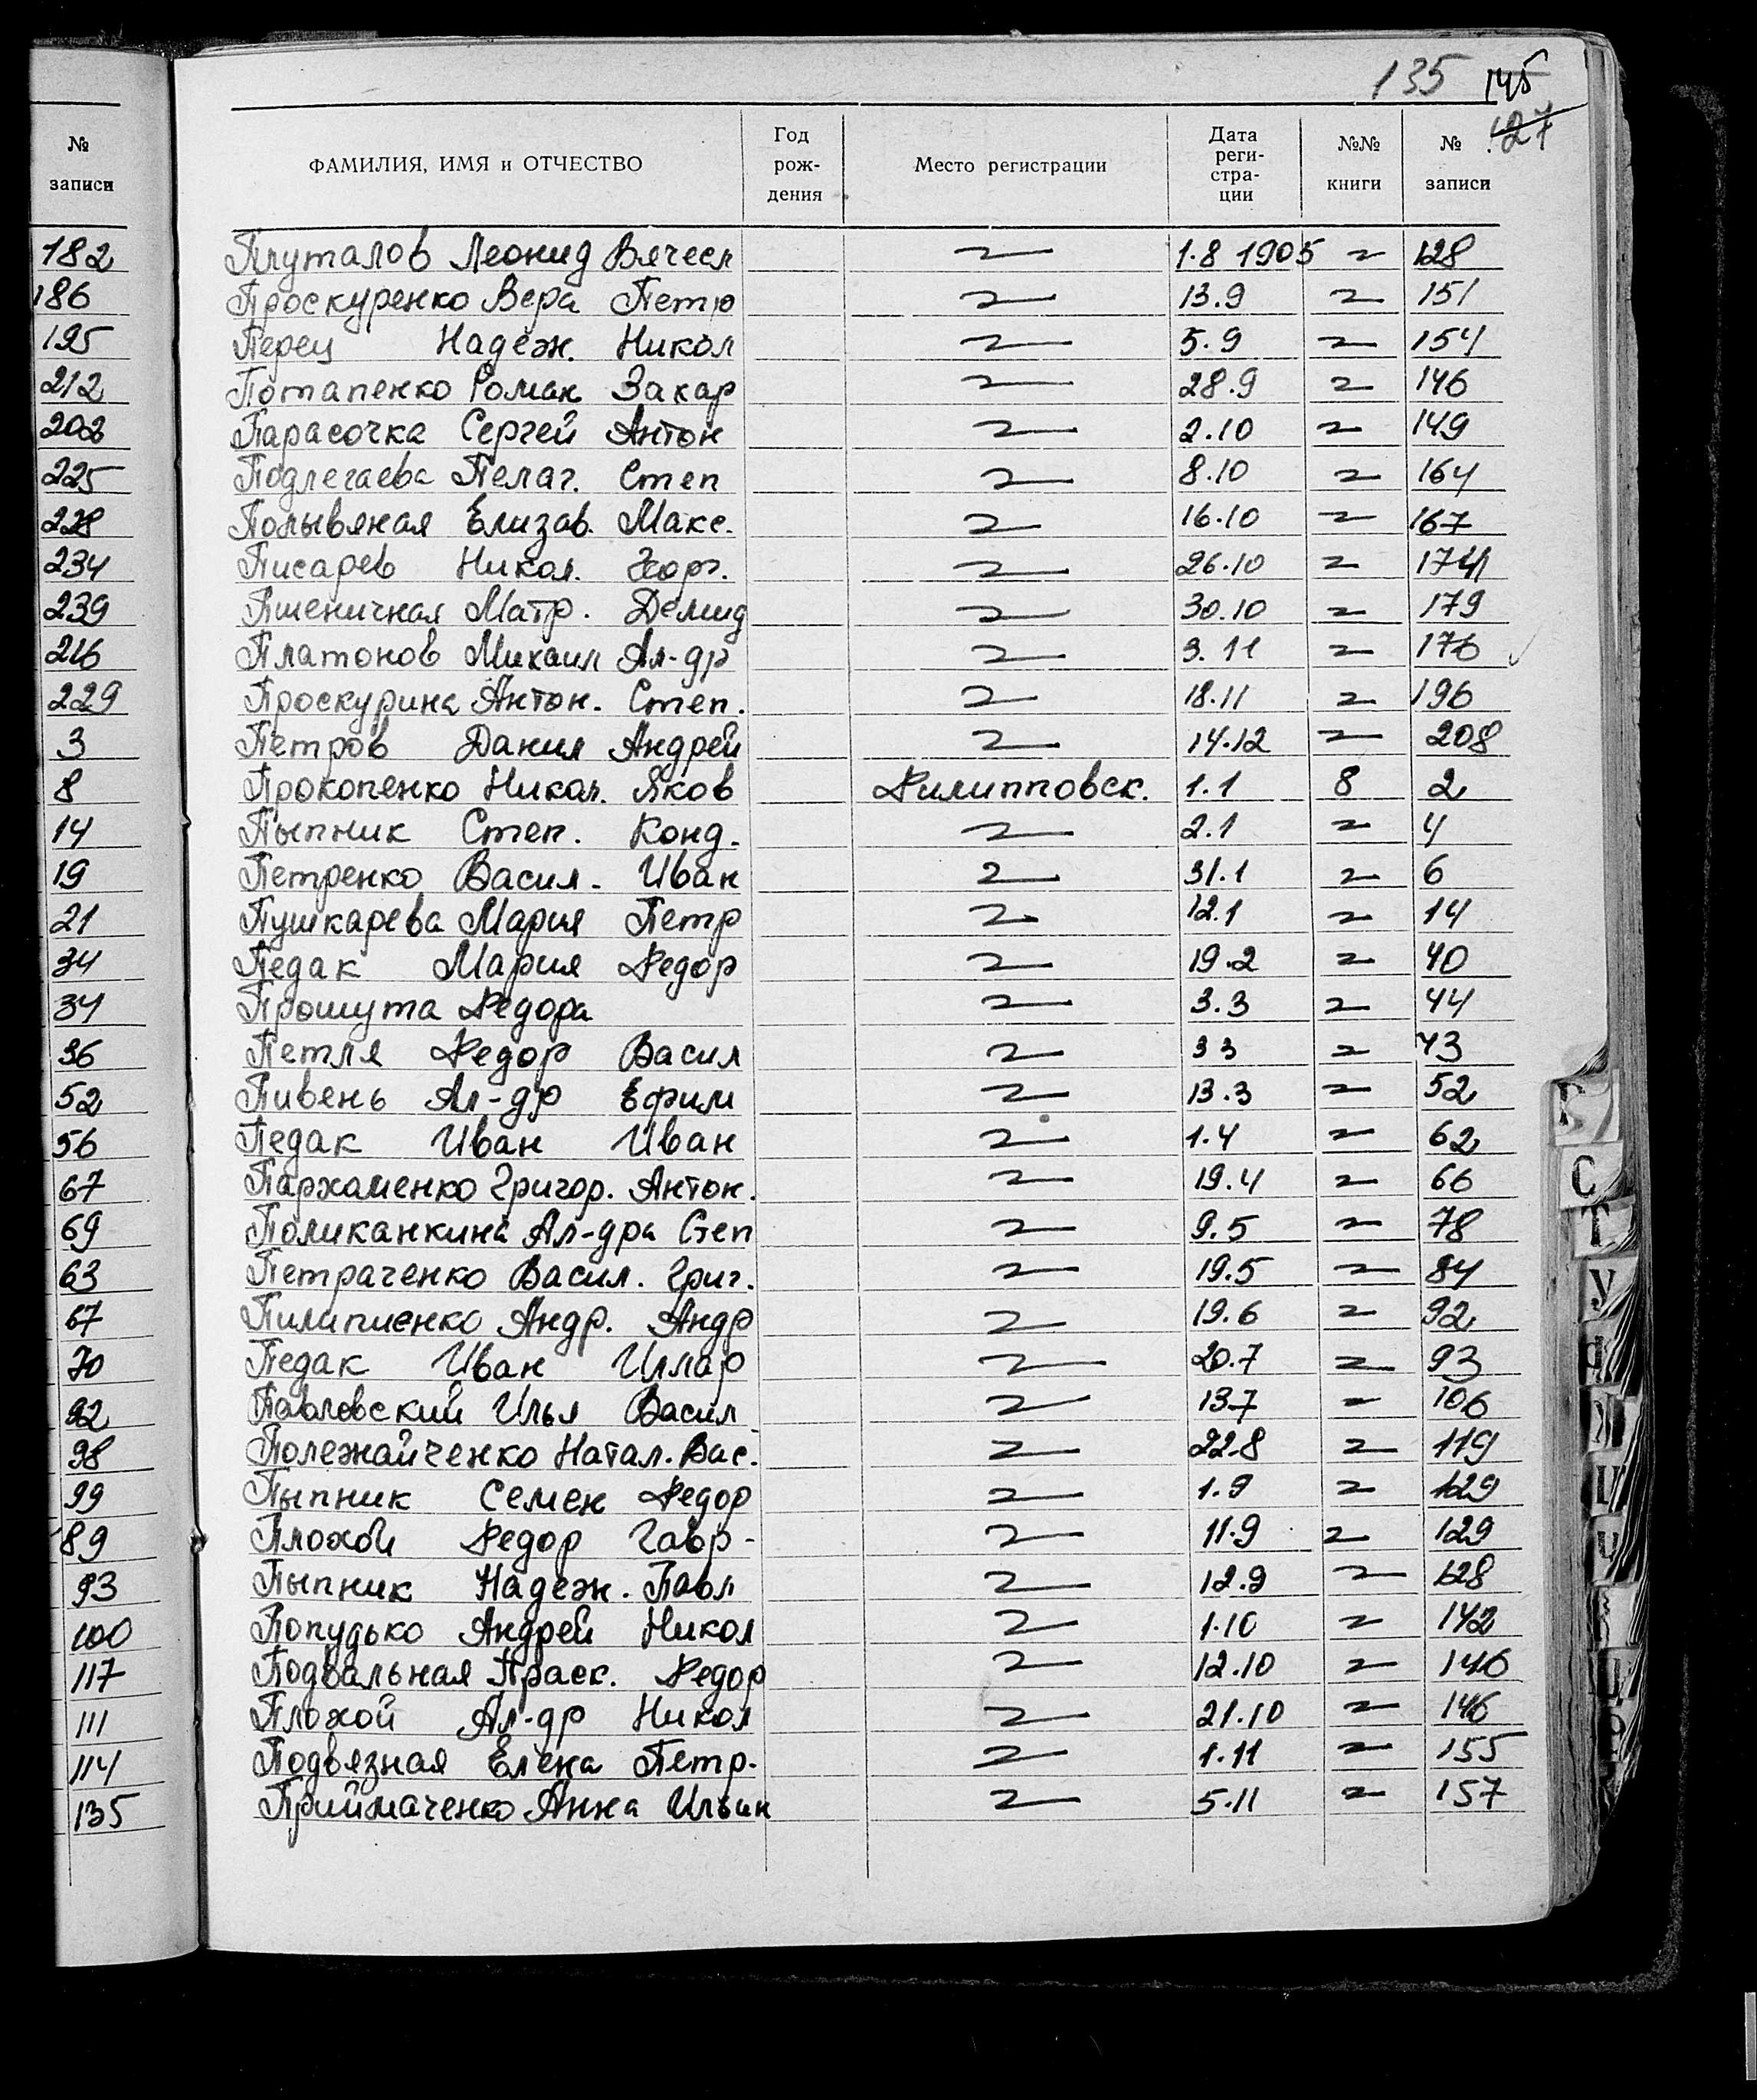 135 145
127
№
записи
182
186
195
212
202
225
228
234
239
216
229
3
8
14
19
21
34
34
36
52
56
67
69
63
67
70
92
98
99
89
93
100
117
111
114
135
ФАМИЛИЯ, ИМЯ и ОТЧЕСТВО Год рождения Место регистрации Дата регистрации №№ книги № записи
Плуталов Леонид Вячесл 1.8 1905 128
Проскуренко Вера Петр 13.9 151
Перец Надеж. Никол 5.9 154
Потапенко Роман Захар 28.9 146
Парасочка Сергей Антон 2.10 149
Подлегаева Пелаг. Степ 8.10 164
Полывяная Елизав. Макс. 16.10 167
Писарев Никол. Георг. 26.10 174
Пшеничная Матр. Демид 30.10 179
Платонов Михаил Ал-др 3.11 176
Проскурина Антон. Степ. 18.11 196
Петров Данил Андрей 14.12 208
Прокопенко Никол. Яков Филипповск. 1.1 8 2
Пыпник Степ. Конд. 2.1 4
Петренко Васил. Иван 31.1 6
Пушкарева Мария Петр 12.1 14
Педак Мария Федор 19.2 40
Прошута Федора 3.3 44
Петля Федор Васил 3 3 43
Пивень Ал-др Ефим 13.3 52
Педак Иван Иван 1.4 62
Пархоменко Григор. Антон. 19.4 66
Поликанкина Ал-дра Степ 9.5 78
Петраченко Васил. Григ. 19.5 84
Пилипиенко Андр. Андр 19.6 92
Педак Иван Иллар 20.7 93
Павловский Илья Васил 13.7 106
Полежайченко Натал. Вас. 22.8 119
Пыпник Семен Федор 1.9 129
Плохой Федор Гавр- 11.9 129
Пыпник Надеж. Павл 12.9 128
Попудько Андрей Никол 1.10 142
Подвальная Праск. Федор 12.10 146
Плохой Ал-др Никол 21.10 146
Подвязная Елена Петр. 1.11 155
Приймаченко Анна Ильин 5.11 157
С
Т
У